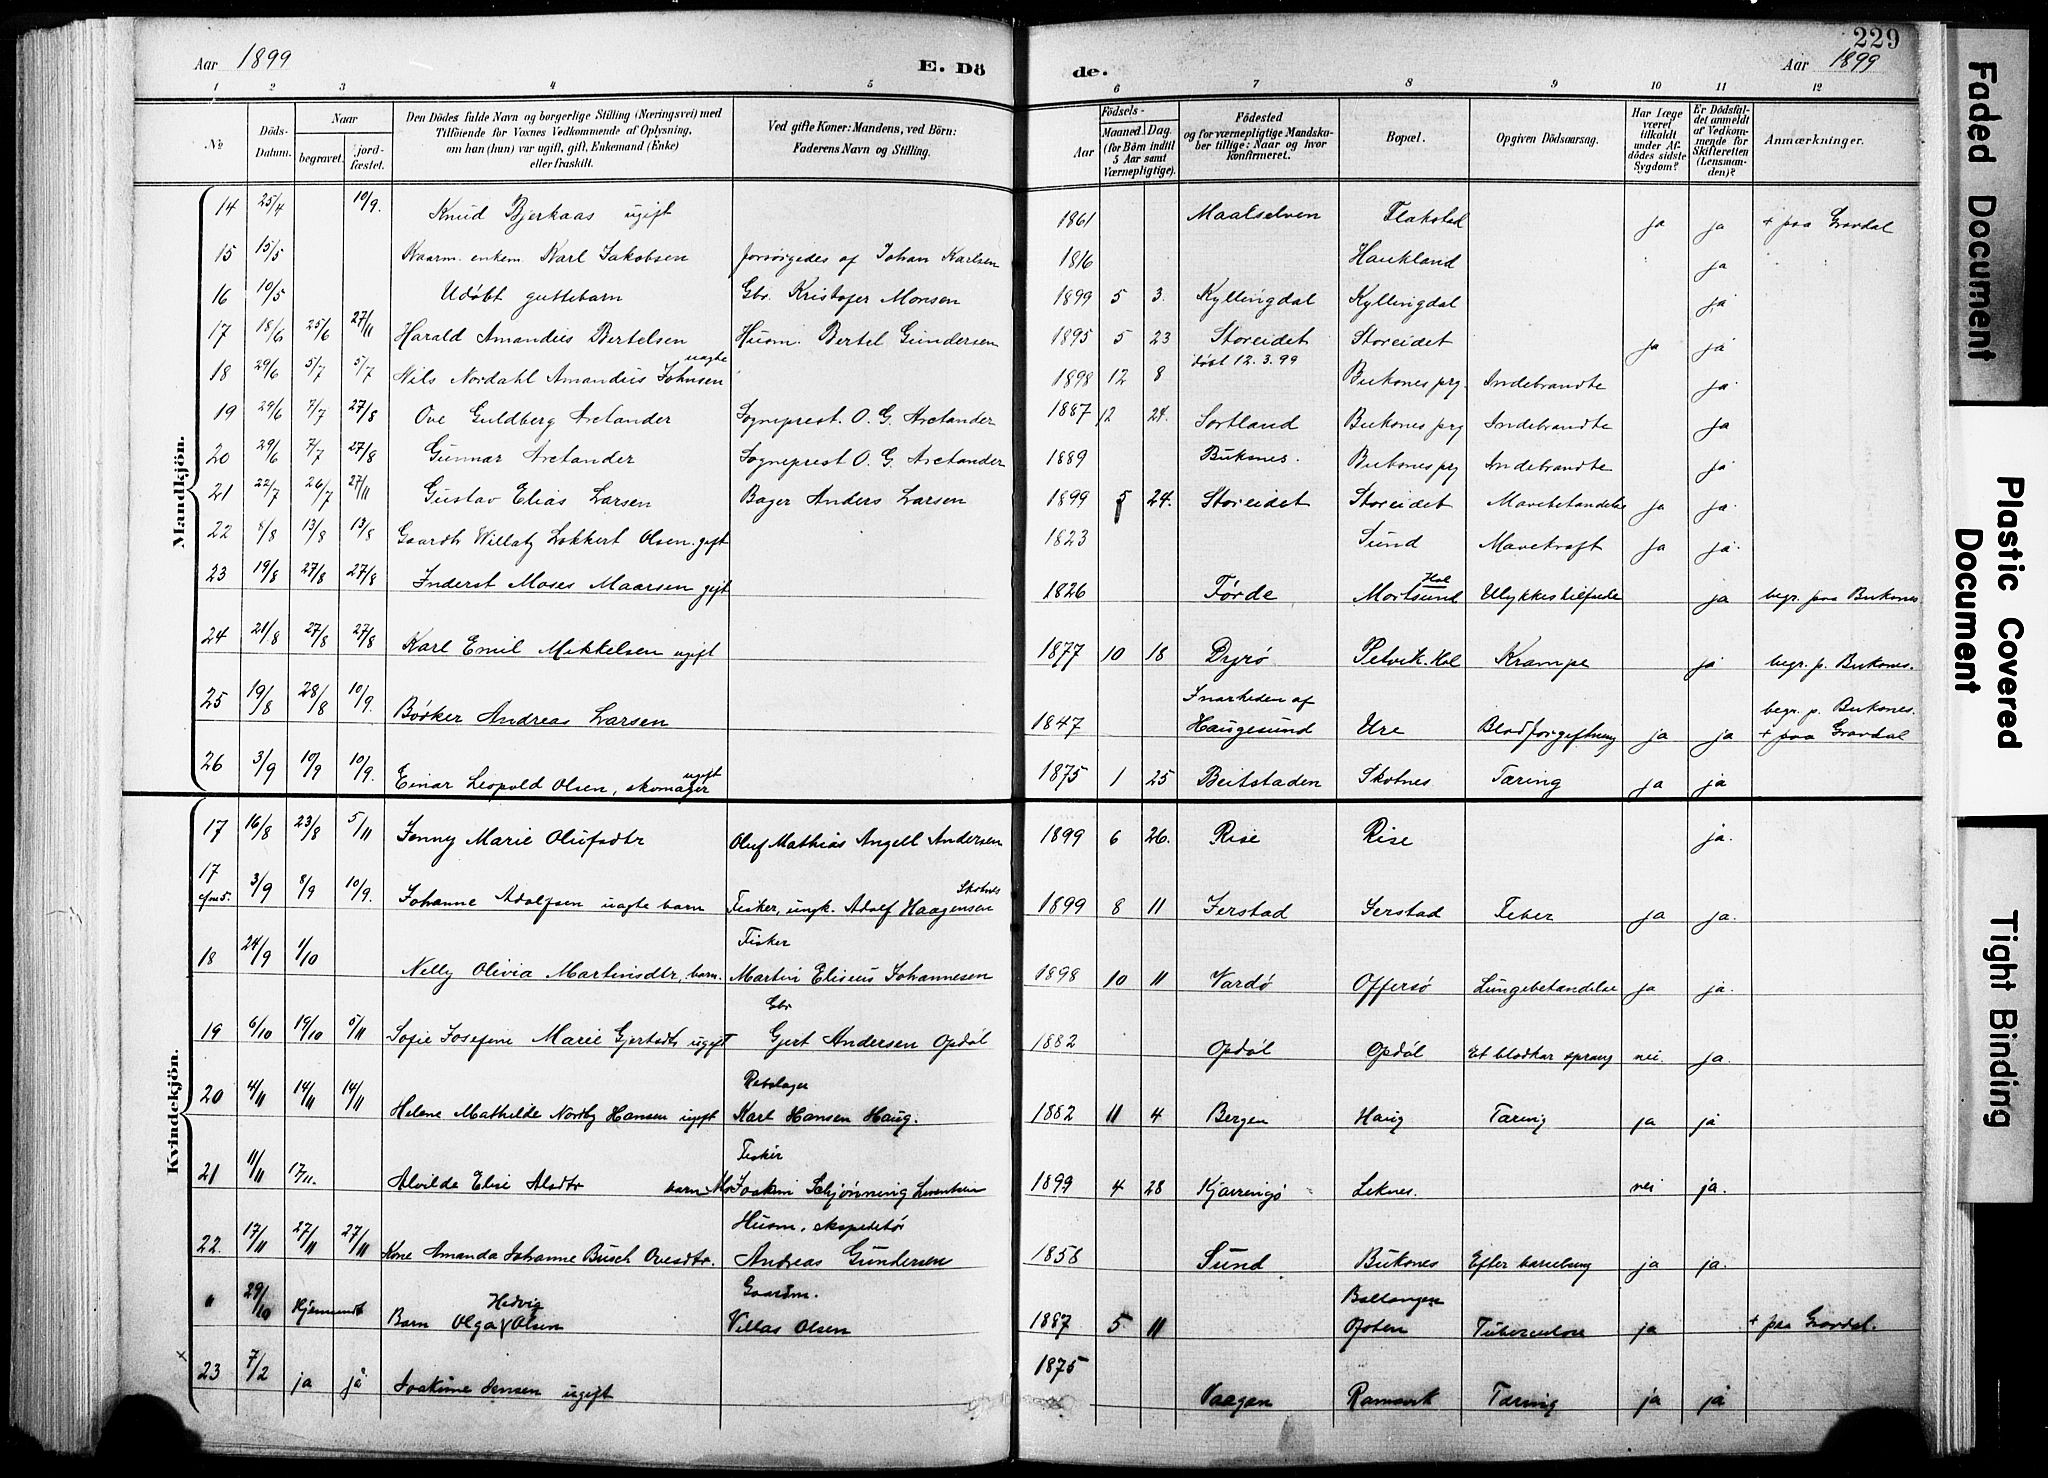 229
Aar 1899 E. Dö
de. Aar 1899
1 2 3 4 5
6 7 8 9 10 11 12
№
Döds-Datum.
Naar
begravet.
jord-fæstet.
Den Dödes fulde Navn og borgerlige Stilling (Næringsvei) med
Tilföiende for Voxnes Vedkommende af Oplysning,
om han (hun) var ugift, gift, Enkemand (Enke)
eller fraskilt.
Ved gifte Koner: Mandens, ved Börn:
Faderens Navn og Stilling.
Födsels-
Aar
Maaned Dag
(for Börn indtil
5 Aar samt
Værnepligtige).
Födested
og for værnepligtige Mandska-
ber tillige: Naar og hvor
konfirmeret.
Bopæl.
Opgiven Dödsaarsag.
Har Læge
været
tilkaldt
under Af-
dödes sidste
Sygdom?
Er Dödsfal-
det anmeldt
af Vedkom-
mende for
Skifteretten
(Lensman-
den)?
Anmærkninger.
Mandkjön.
14 25/4 10/9. Knud Bjerkaas ugift 1861 Maalselven Flakstad ja ja + paa Gravdal
15 15/5 Kaarm. enkem. Karl Jakobsen forsørgedes af Johan Karlsen 1816 Haukland ja
16 10/5 Udøbt guttebarn Gbr. Kristofer Monsen 1899 5 3. Kyllingdal Kyllingdal ja
17 18/6 25/6 27/11 Harald Amandus Bertelsen Husm. Bertel Gundersen 1895 5 23 Storeidet Storeidet ja ja
18 29/6 5/7 5/7 Nils Nordahl Amandus Johnsen uagte 1898 12 8 døbt 12.3.99 Buksnes prg. Indebrandte ja
19 29/6 7/7 27/8 Ove Guldberg Arctander Sogneprest O. G. Arctander 1887 12 24. Sortland Buksnes prg Indebrandte ja
20 29/6 7/7 27/8 Gunnar Arctander Sogneprest O. G. Arctander 1889 Buksnes. Buksnes prg Indebrandte ja
21 22/7 26/7 27/11 Gustav Elias Larsen Bager Anders Larsen 1899 5 24. Storeidet Storeidet Mavebetandelse ja ja
22 8/8 13/8 13/8 Gaardb. Willatz Lokkert Olsen. gift 1823 Sund Mavekræft ja ja.
23 19/8 27/8 27/8 Inderst Moses Maarsen gift 1826 Førde Mortsund Hol Ulykkestilfælde ja begr. paa Buksnes
24 21/8 27/8 27/8 Karl Emil Mikkelsen ugift 1877 10 18 Dyrø Petvik. Hol Krampe ja begr. p. Buksnes.
25 19/8 28/8 10/9. Bødker Andreas Larsen 1847 Snarheden af Haugesund Ure Blodforgiftning ja ja begr. p. Buksnes. + paa Gravdal
26 3/9 10/9 10/9. Einar Leopold Olsen, skomager ugift 1875 1 25 Beitstaden Skotnes Tæring ja ja
Kvindekjön.
17 16/8 23/8 5/11 Jenny Marie Olufsdtr Oluf Mathias Angell Andersen 1899 6 26. Rise Rise ja.
17 3/9 8/9 10/9. Johanne Adolfsen uagte barn Fisker, ungk. Adolf Haagensen Skotnes 1899 8 11 Jerstad Jerstad Feber ja ja.
18 24/9 1/10 Nelly Olivia Martinsdtr, barn. Fisker Martin Eliseus Johannesen 1898 10 11 Vardø Offersø Lungebetandelse ja ja.
19 6/10 19/10 5/11 Sofie Josefine Marie Gjertsdtr ugift Gbr Gjert Andersen Opdøl 1882 Opdøl Opdøl Et blodkar sprang nei ja.
20 4/11 14/11 14/11 Helene Mathilde Nordby Hansen ugift Rebslager Karl Hansen Haug. 1882 11 4 Bergen Haug Tæring ja ja
21 11/11 17/11. Alvilde Elise Alsdtr barn Fisker Joakim Schjønning Lorentsen 1899 4 28 Kjærringø Leknes. nei ja.
22. 17/11 27/11 27/11 Kone Amanda Johanne Busch Ovesdtr. Husm. ekspeditør Andreas Gundersen 1858 Sund Buksnes Efter barselseng ja ja.
" 29/10 Hjemsendt Barn Olga Hedvig Olsen Gaardm. Villas Olsen 1887 5 11 Ballangen Ofoten Tuberculose ja + paa Gravdal.
23 7/2 ja ja Joakime Jensen ugift 1875 Vaagan Ramsvik Tæring ja ja
Faded Document
Plastic Covered
Document
Tight Binding